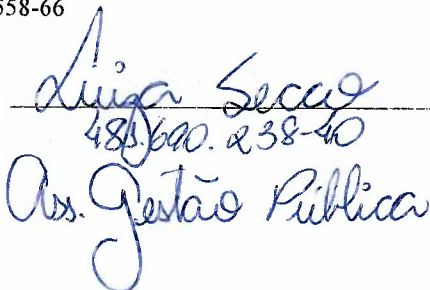 558-66
Luiza Secco
483.690.238-40
Ass. Gestão Pública